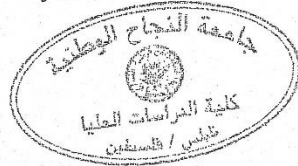 جامعة النجاح الوطنية
كلية الدراسات العليا
نابلس / فلسطين